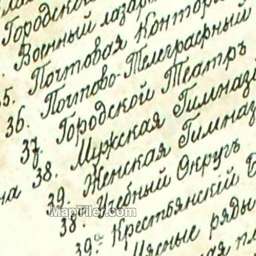 Городской
Военный лазар
35. Почтовая Контора
36. Почтово-Телеграфный
37. Городской Театръ
38. Мужская Гимназ
39. Женская Гимназ
38. Учебный Округъ
39ª Крестьянскій Б
Мясные ряды
ая пл
на
MapTiler.com
MapTiler.com